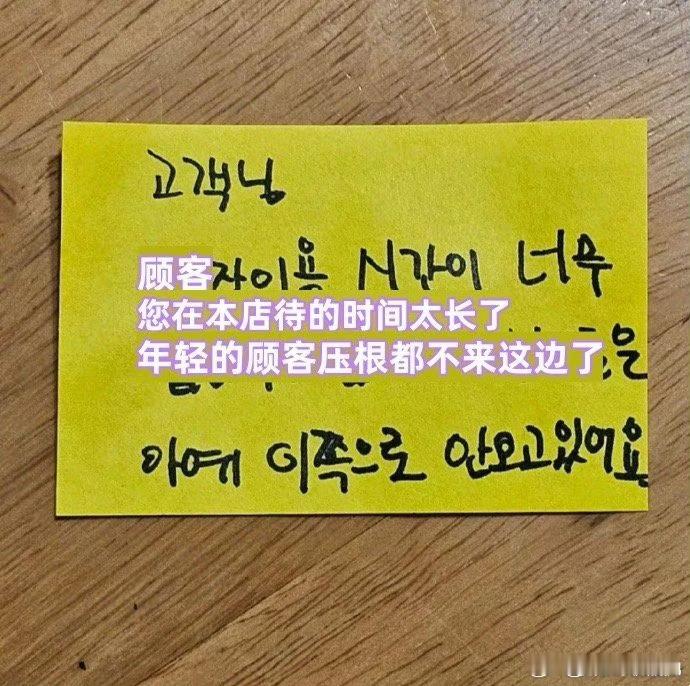 고객님
顾客
자이용 시간이 너무
您在本店待的时间太长了
年轻的顾客压根都不来这边了
은
아예 이쪽으로 안오고있어요.